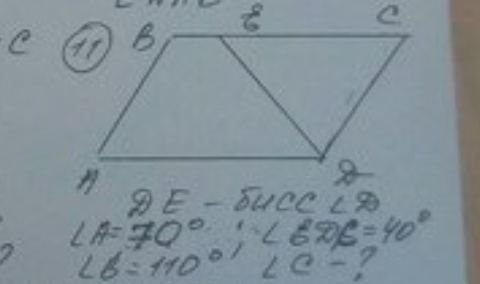 C (11) B E C
A D
DE - бисс ∠D
∠A=70° ; ∠EDC=40°
∠B=110° , ∠C - ?
?